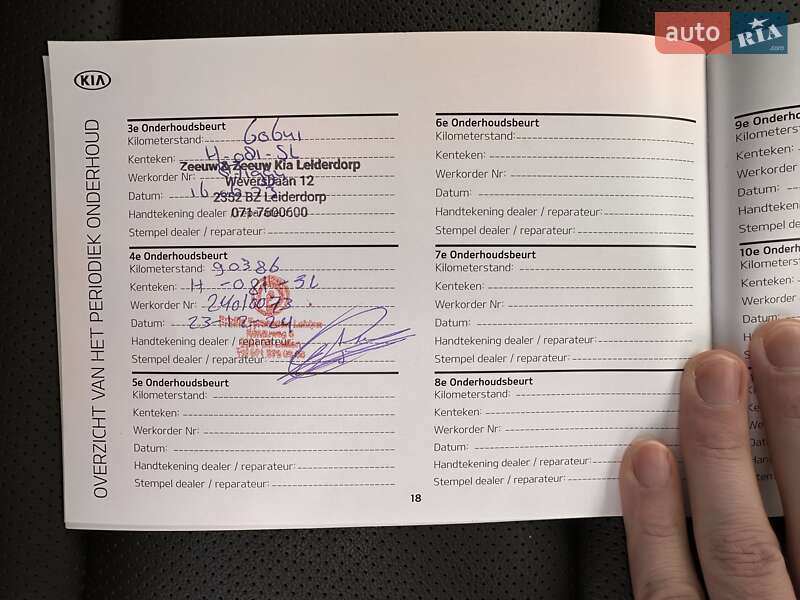 auto RIA .com
KIA
OVERZICHT VAN HET PERIODIEK ONDERHOUD
3e Onderhoudsbeurt
Kilometerstand:
Kenteken: H-081-SL
Zeeuw & Zeeuw Kia Leiderdorp
Werkorder Nr:
Weversbaan 12
Datum:
2352 BZ Leiderdorp
Handtekening dealer / reparateur:
071-7600600
Stempel dealer / reparateur:
4e Onderhoudsbeurt
Kilometerstand: 90386
Kenteken: H-081-SL
Werkorder Nr: 24010073
Datum: 23-12-24
Handtekening dealer / reparateur:
Stempel dealer / reparateur:
5e Onderhoudsbeurt
Kilometerstand:
Kenteken:
Werkorder Nr:
Datum:
Handtekening dealer / reparateur:
Stempel dealer / reparateur:
6e Onderhoudsbeurt
Kilometerstand:
Kenteken:
Werkorder Nr:
Datum:
Handtekening dealer / reparateur:
Stempel dealer / reparateur:
7e Onderhoudsbeurt
Kilometerstand:
Kenteken:
Werkorder Nr:
Datum:
Handtekening dealer / reparateur:
Stempel dealer / reparateur:
8e Onderhoudsbeurt
Kilometerstand:
Kenteken:
Werkorder Nr:
Datum:
Handtekening dealer / reparateur:
Stempel dealer / reparateur:
18
9e Onderho
Kilometerst
Kenteken:
Werkorder
Datum:
Handteken
Stempel de
10e Onderh
Kilometers
Kenteken:
Werkorder
Datum: